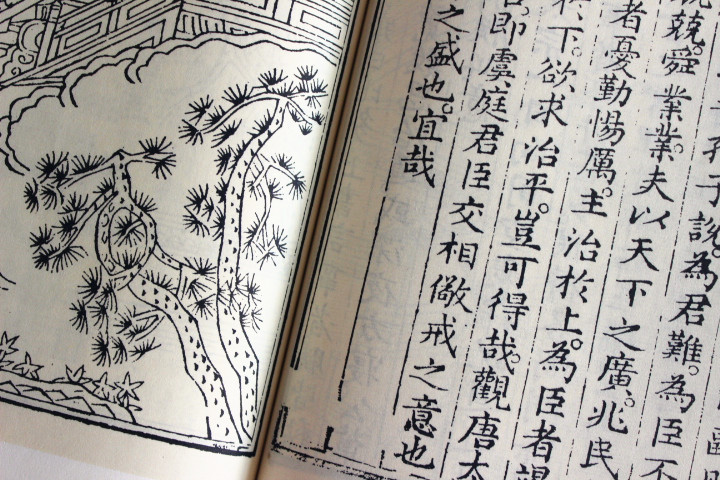 孔子說。為君難。為臣不
兢。舜業業。夫以天下之廣。兆民
者憂勤惕厲。主治於上。為臣者
下。欲求治平。豈可得哉。觀唐太
即虞庭君臣交相儆戒之意也
之盛也。宜哉